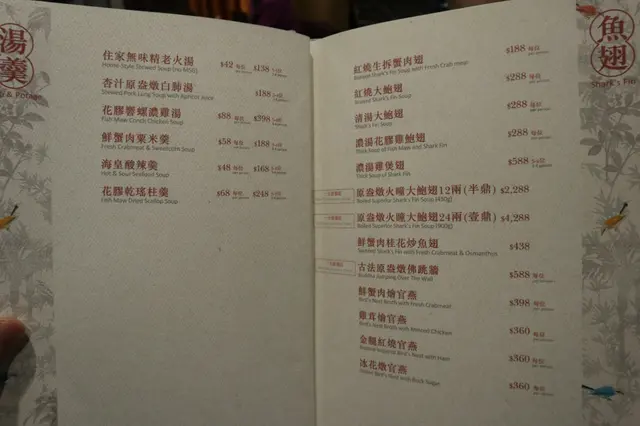 湯羹
住家無味精老火湯 $42 每位 $138
Home-Style Stewed Soup (no MSG)
杏汁原盅燉白肺湯 $188
Stewed Pork Lung Soup with Apricot Juice
花膠響螺濃雞湯 $88 每位 $398
Fish Maw Conch Chicken Soup
鮮蟹肉粟米羹 $58 每位 $188
Fresh Crabmeat & Sweetcorn Soup
海皇酸辣羹 $48 每位 $168
Hot & Sour Seafood Soup
花膠乾瑤柱羹 $68 每位 $248
Fish Maw Dried Scallop Soup
魚翅
Shark's Fin
紅燒生拆蟹肉翅 $188 每位
Braised Shark's Fin Soup with Fresh Crab meat
紅燒大鮑翅 $288 每位
Braised Shark's Fin Soup
清湯大鮑翅 $288 每位
Shark's Fin Soup
濃湯花膠雞鮑翅 $288 每位
Thick Soup of Fish Maw and Shark Fin
濃湯雞煲翅 $588
Thick Soup of Shark's Fin
原盅燉火瞳大鮑翅12兩(半鼎) $2,288
Boiled Superior Shark's Fin Soup (450g)
原盅燉火瞳大鮑翅24兩(壹鼎) $4,288
Boiled Superior Shark's Fin Soup (900g)
鮮蟹肉桂花炒魚翅 $438
Sauteed Shark's Fin with Fresh Crabmeat & Osmanthus
古法原盅燉佛跳牆 $588 每位
Buddha Jumping Over The Wall
鮮蟹肉燴官燕 $398 每位
Bird's Nest Broth with Fresh Crabmeat
雞茸燴官燕 $360 每位
Bird's Nest Broth with Minced Chicken
金腿紅燒官燕 $360 每位
Braised Imperial Bird's Nest with Ham
冰花燉官燕 $360 每位
Bird's Nest with Rock Sugar